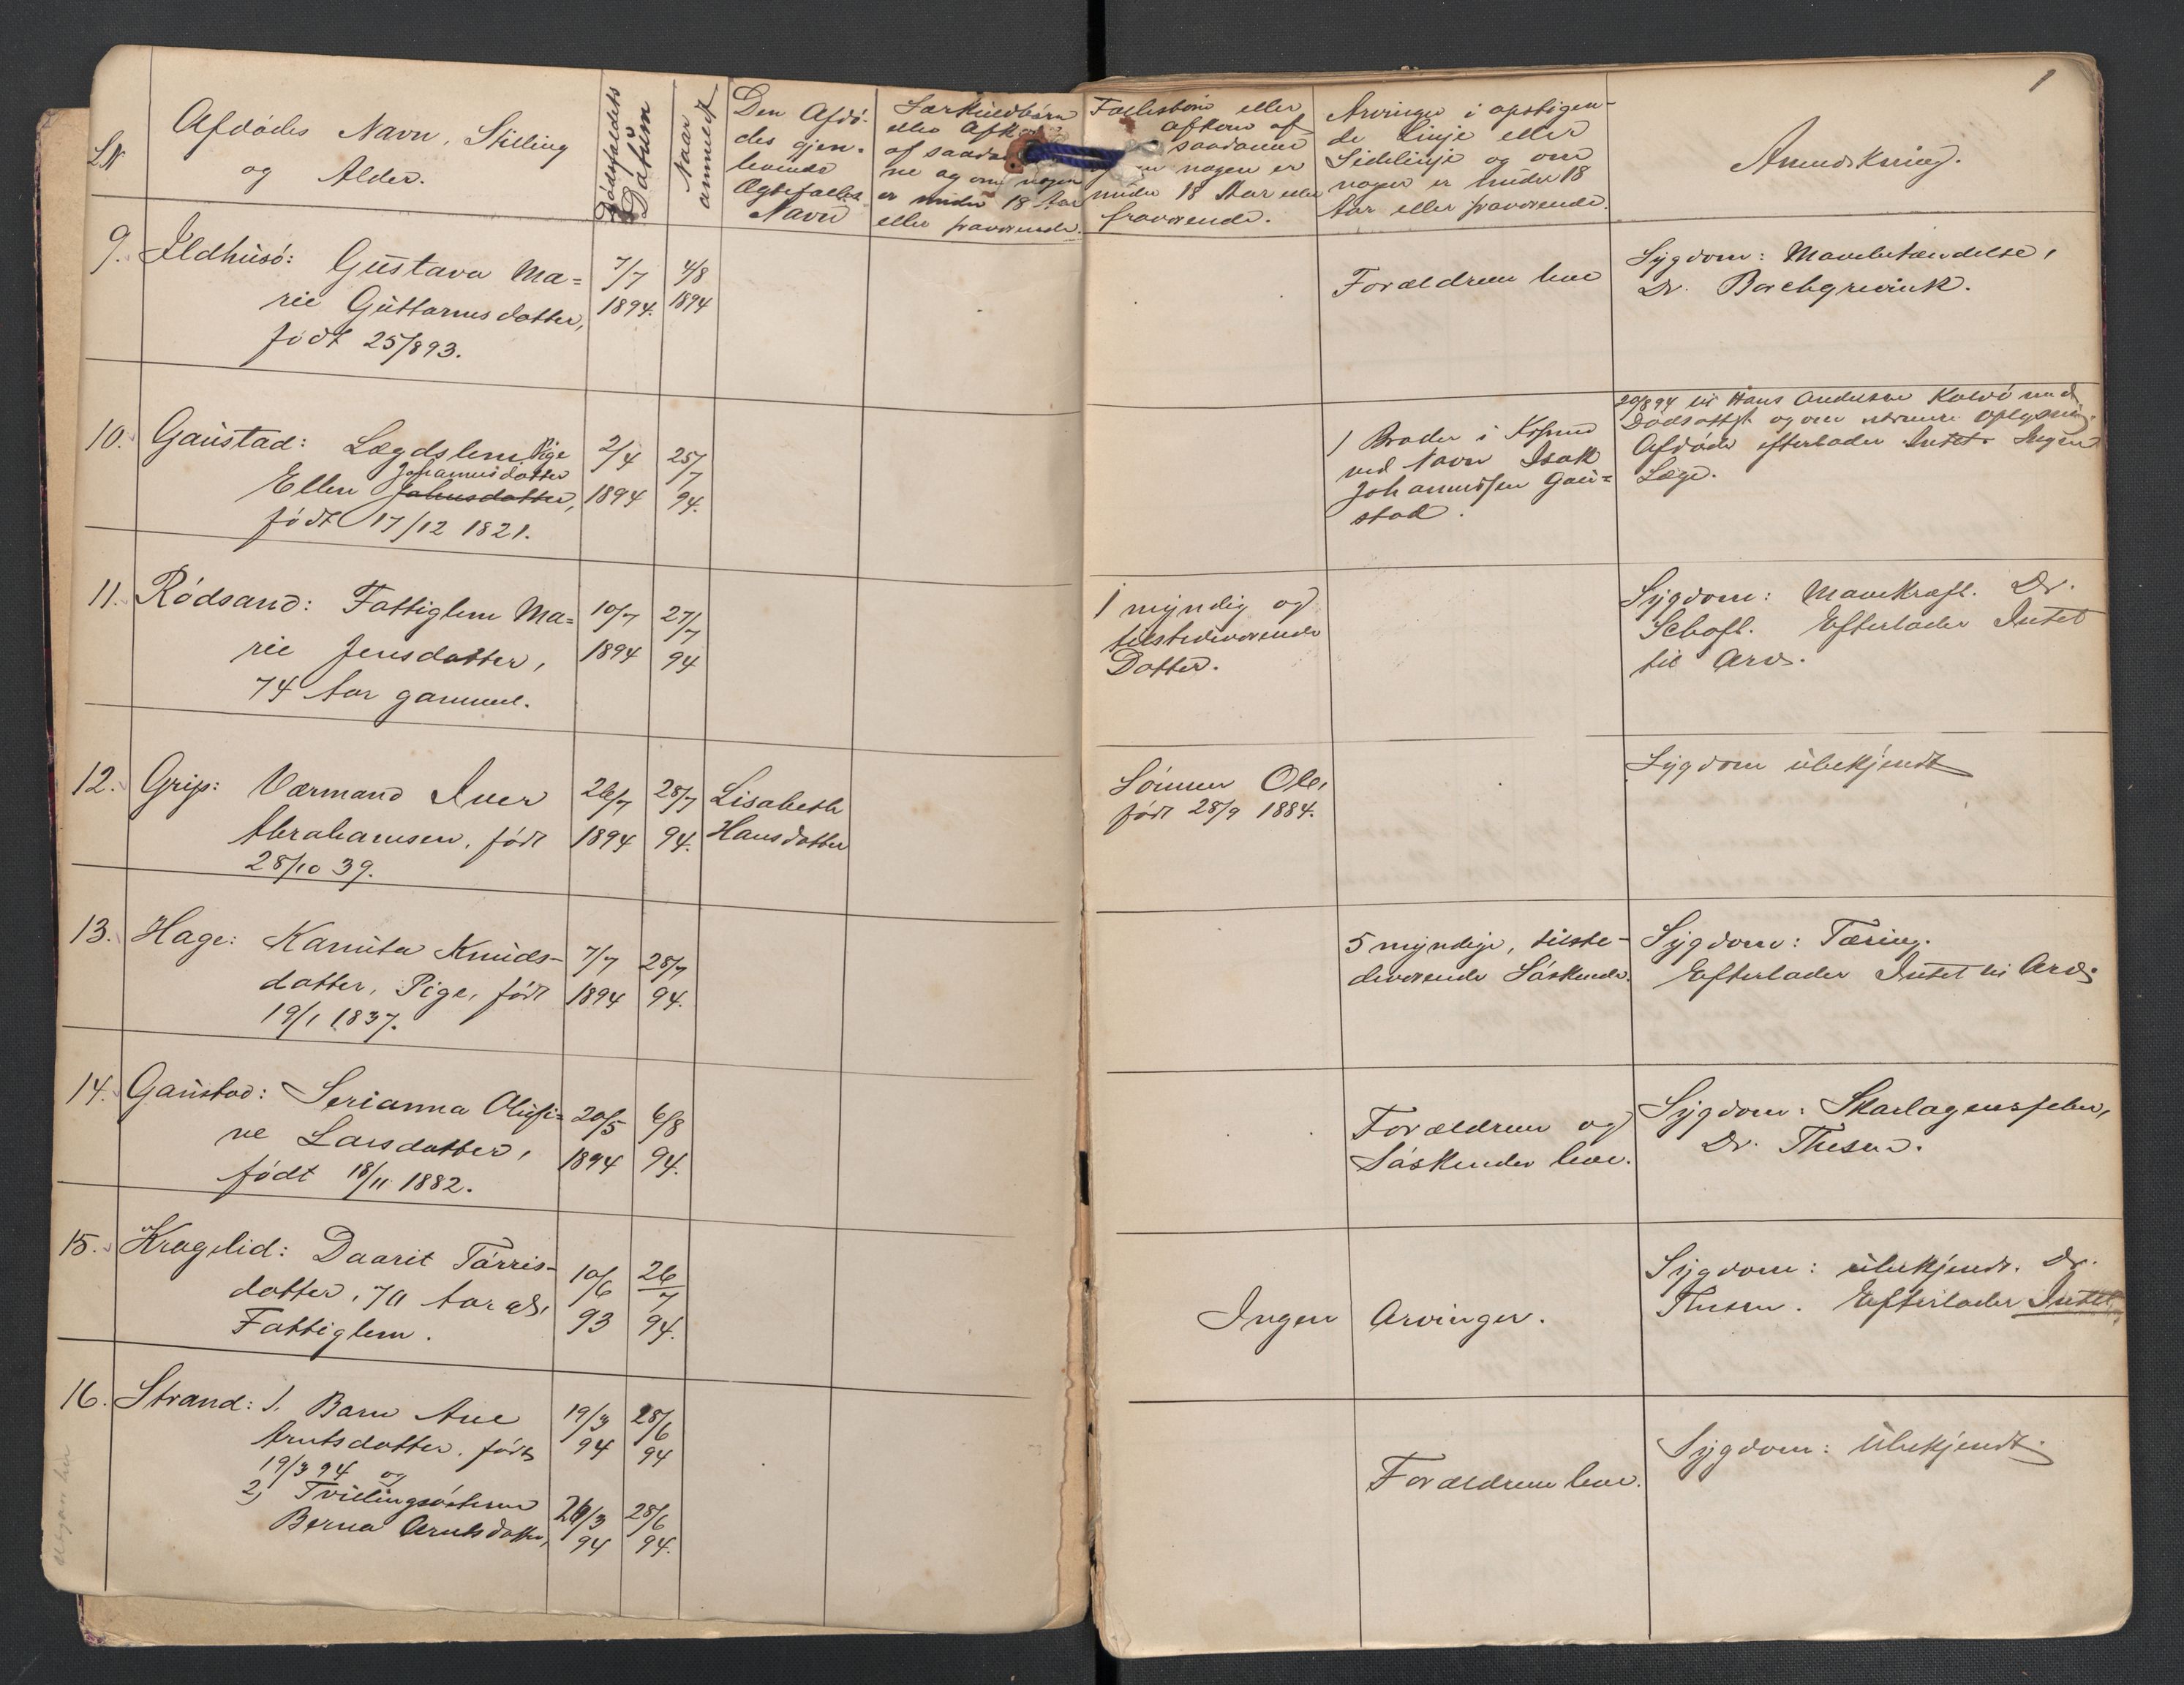 1
L.N
Afdødes Navn, Stilling
og Alder.
Dødsfaldets
Datum
Naar
anmeldt
Den Afdø-
des gjen-
levende
Ægtefælles
Navn
Særkuldbørn
eller Afkom
af saadan-
ne og om nogen
er under 18 Aar
eller fraværende.
Fællesbørn eller
Afkom af
saadanne
og om nogen er
under 18 Aar eller
fraværende.
Arvinger i opstigen-
de Linje eller
Sidelinje og om
nogen er under 18
Aar eller fraværende.
Anmærkning.
9. Ildhusø: Gustava Ma=
rie Guttormsdatter,
født 25/893.
7/7
1894.
4/8
1894
Forældrene leve
Sygdom: Mavebetændelse,
Dr. Borchgrevink.
10. Gaustad: Lægdslem Pige
Johannesdatter
Ellen Johnsdatter,
født 17/12 1821.
2/4
1894
25/7
94.
1 Broder i Kr.sund
ved Navn Isak
Johannessen Gau=
stad.
29/894 til Hans Andersen Kolvi med
Dødsattest og om nærmere Oplysning.
Afdøde efterlader Intet. Ingen
Læge.
11. Rødsand: Fattiglem Ma=
rie Jensdatter,
74 Aar gammel.
10/7
1894
27/7
94
1 myndig og
tilstedeværende
Datter.
Sygdom: Mavekræft. Dr.
Schaft. Efterlader Intet
til Arv.
12. Grip: Værmand Iver
Abrahamsen, født
28/10 39.
26/7
1894
28/7
94.
Lisabeth
Hansdatter
Sønnen Ole,
født 28/9 1884.
Sygdom ubekjendt
13. Hage: Kanuta Knuds-
datter, Pige, født
19/1 1837.
7/7
1894
28/7
94.
5 myndige, tilste-
deværende Søskende.
Sygdom: Tæring.
Efterlader Intet til Arv.
14. Gaustad: Serianna Olufi=
ne Larsdatter,
født 18/11 1882.
20/5
1894
6/8
94.
Forældrene og
Søskender leve.
Sygdom: Skarlagensfeber,
Dr. Thesen.
15. Kragelid: Daarit Tørris-
datter, 70 Aar gl,
Fattiglem.
10/6
93
26/7
94.
Ingen Arvinger.
Sygdom: ubekjendt. Dr.
Thesen. Efterlader Intet
16. Strand: 1. Barn Ane
Arntsdatter, født
19/3 94 og
2, Tvillingsøsteren
Berna Arntsdatter,
19/3
94
28/6
94
26/3
94
28/6
94.
Forældrene leve.
Sygdom: Ubekjendt.